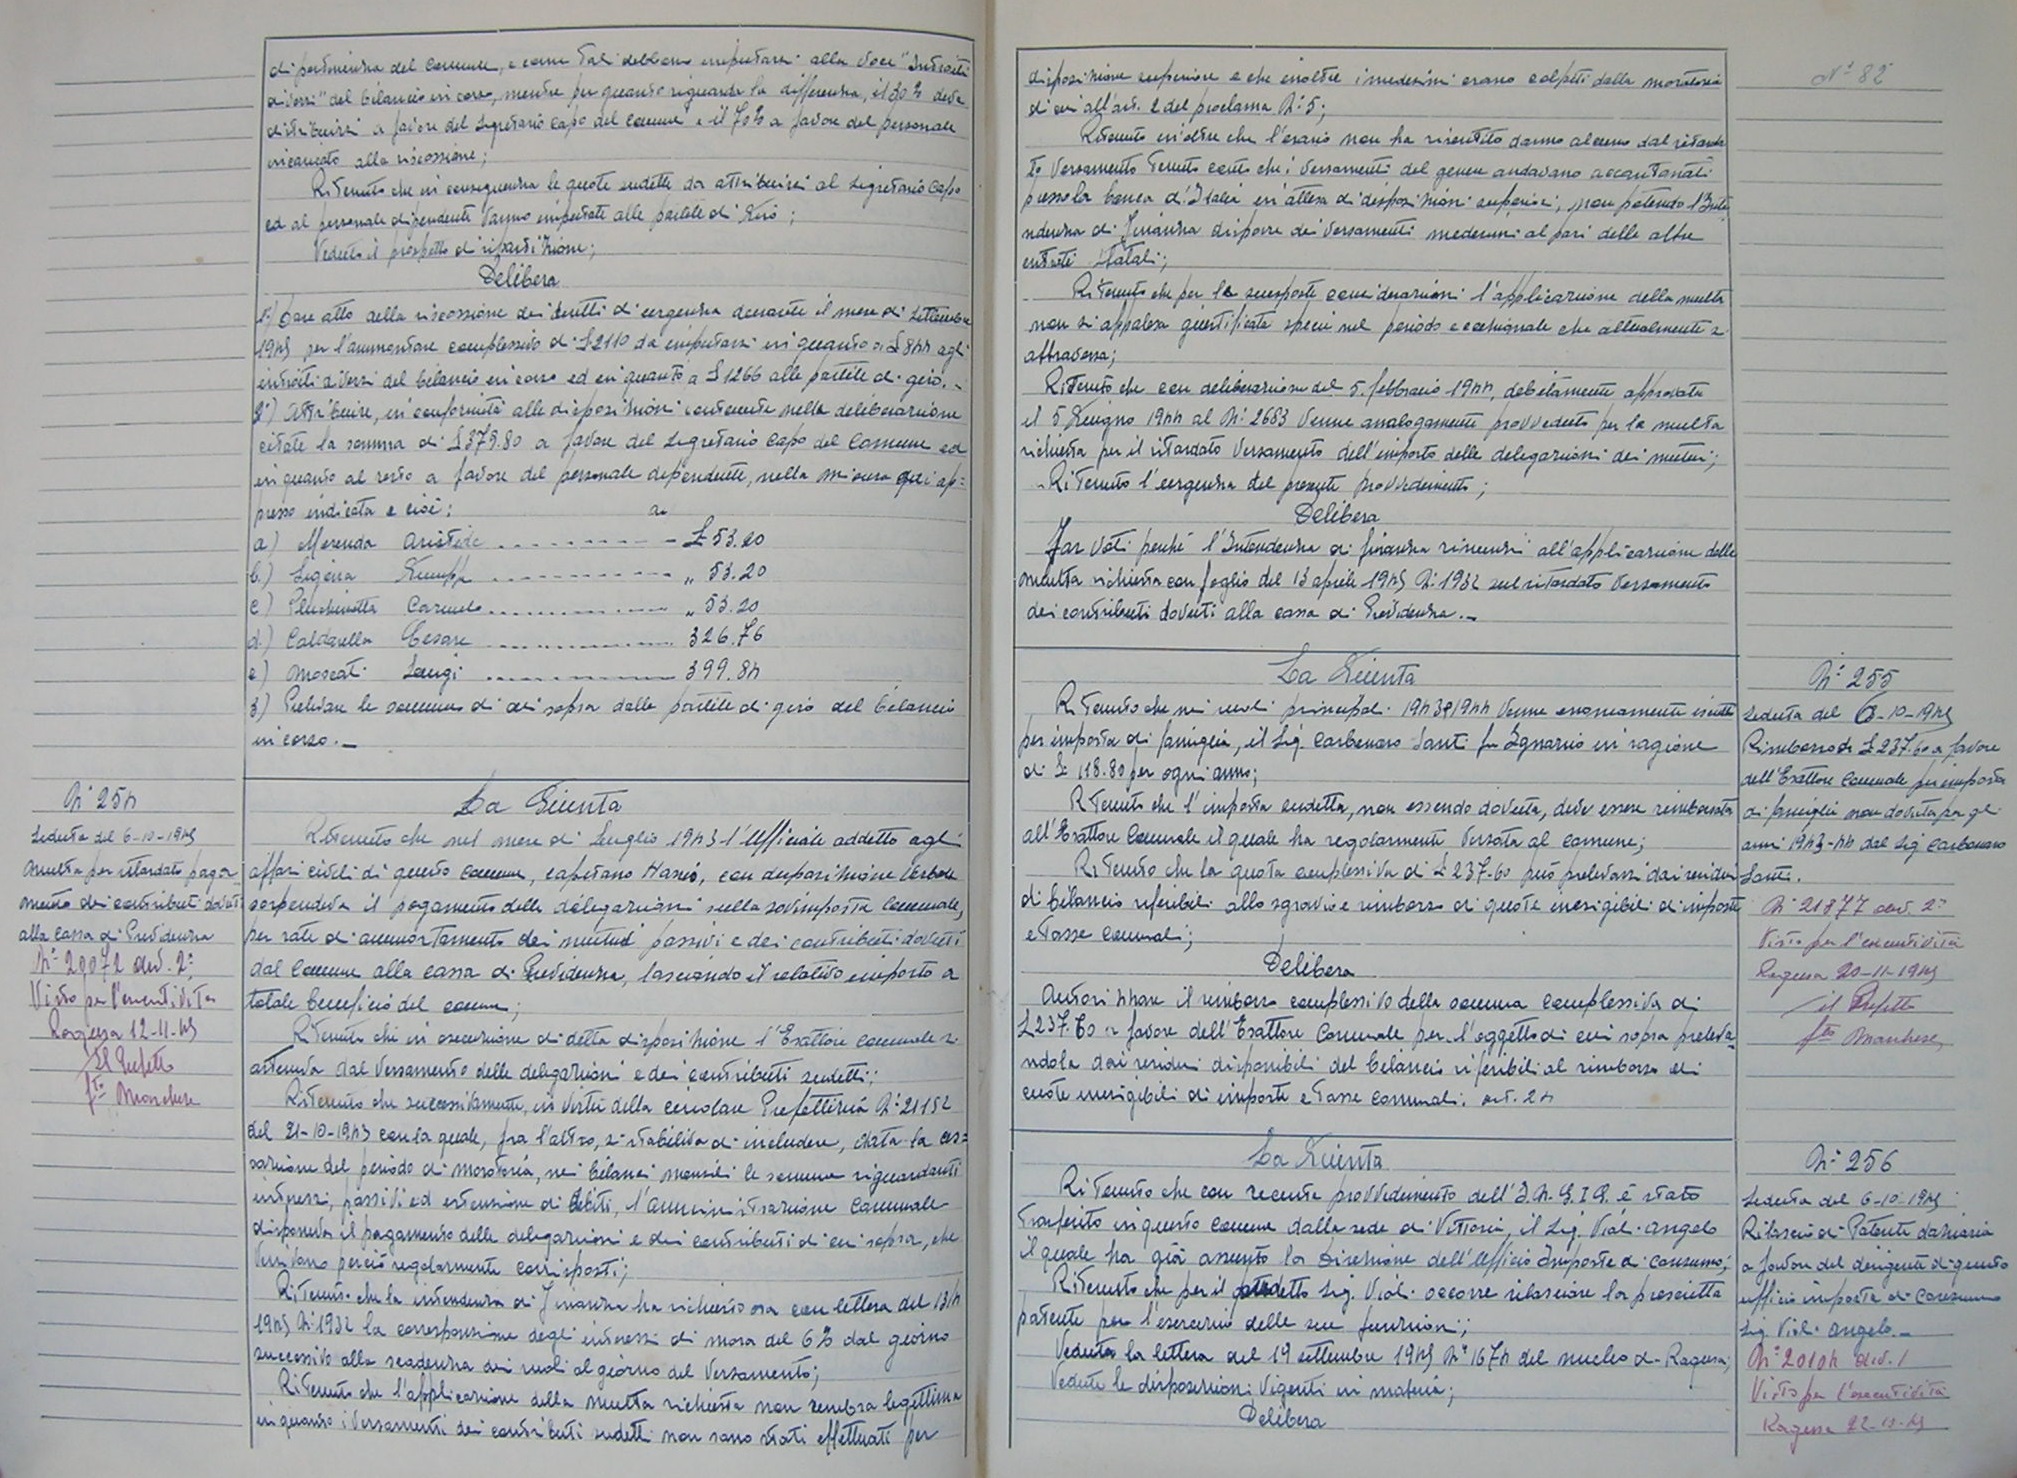 di pertinenza del Comune, e come tali debbano imputarsi alla voce "Introiti
diversi" del bilancio in corso, mentre per quanto riguarda la differenza, il 30% deve
distribuirsi a favore del Segretario Capo del Comune e il 70% a favore del personale
incaricato alla riscossione;
Ritenuto che in conseguenza le quote sudette da attribuirsi al Segretario Capo
ed al personale dipendente vanno imputate alle partite di Giro;
Veduto il prospetto di ripartizione;
Delibera
1°) Dare atto della riscossione dei diritti di urgenza durante il mese di Settembre
1945 per l'ammontare complessivo di £ 2110 da imputarsi in quanto a £ 844 agli
introiti diversi del bilancio in corso ed in quanto a £ 1266 alle partite di giro. -
2°) Attribuire, in conformità alle disposizioni contenute nella deliberazione
citate la somma di £ 379.80 a favore del Segretario Capo del Comune ed
in quanto al resto a favore del personale dipendente, nella misura qui ap=
presso indicata e cioè:
a) Merenda Aristide - - - - - £ 53.20
b) Ligeira Giuseppe - - - - - „ 53.20
c) Pluchinotta Carmelo - - - - - „ 53.20
d) Caldarella Cesare - - - - - 326.76
e) Moscati Luigi - - - - - 399.84
3) Prelevare le somme di cui sopra dalle partite di giro del bilancio
in corso. -
N° 254
Seduta del 6-10-1945
Multa per ritardato paga-
mento dei contributi dovuti
alla Cassa di Previdenza
N° 29072 div. 2ª
Visto per l'esecutività
Ragusa 12-11-45
Il Prefetto
fto Marchese
La Giunta
Ritenuto che nel mese di Luglio 1943 l'Ufficiale addetto agli
affari civili di questo Comune, capitano Hares, con disposizione verbale
sospendeva il pagamento delle delegazioni sulla sovrimposta Comunale,
per rate di ammortamento dei mutui passivi e dei contributi dovuti
dal Comune alla Cassa di Previdenza, lasciando il relativo importo a
totale beneficio del comune;
Ritenuto che in esecuzione di detta disposizione l'Esattore comunale si
asteneva dal versamento delle delegazioni e dei contributi sudetti;
Ritenuto che successivamente, in virtù della circolare Prefettizia N° 21152
del 21-10-1943 con la quale, fra l'altro, si stabiliva di includere, data la ces=
sazione del periodo di moratoria, nei bilanci mensili le somme riguardanti
interessi, passivi ed estinzione di debiti, l'Amministrazione Comunale
disponeva il pagamento delle delegazioni e dei contributi di cui sopra, che
venivano perciò regolarmente corrisposti;
Ritenuto che la intendenza di Finanza ha richiesto ora con lettera del 13/4
1945 N° 1932 la corresponsione degli interessi di mora del 6% dal giorno
successivo alla scadenza dei ruoli al giorno del versamento;
Ritenuto che l'applicazione della multa richiesta non sembra legittima
in quanto i versamenti dei contributi sudetti non sono stati effettuati per
N° 82
disposizione superiore e che inoltre i medesimi erano colpiti dalla moratoria
di cui all'art. 2 del proclama N° 5;
Ritenuto inoltre che l'erario non ha risentito danno alcuno dal ritarda
to versamento tenuto conto che i versamenti del genere andavano accantonati
presso la banca d'Italia in attesa di disposizioni superiori, non potendo l'Inte
ndenza di Finanza disporre dei versamenti medesimi al pari delle altre
entrate Statali;
Ritenuto che per le suesposte considerazioni l'applicazione della multa
non si appalesa giustificata specie nel periodo eccezionale che attualmente si
attraversa;
Ritenuto che con deliberazione del 5 febbraio 1944, debitamente approvata
il 5 Giugno 1944 al N° 2683 venne analogamente provveduto per la multa
richiesta per il ritardato versamento dell'importo delle delegazioni dei mutui;
Ritenuto l'urgenza del presente provvedimento;
Delibera
Far voti perché l'Intendenza di finanza rinunzi all'applicazione della
multa richiesta con foglio del 13 aprile 1945 N° 1932 sul ritardato versamento
dei contributi dovuti alla Cassa di Previdenza. -
La Giunta
Ritenuto che nei ruoli principali 1943 e 1944 venne erroneamente iscritto
per imposta di famiglia, il Sig. Carbonaro Santi fu Ignazio in ragione
di £ 118.80 per ogni anno;
Ritenuto che l'imposta sudetta, non essendo dovuta, deve essere rimborsata
all'Esattore Comunale il quale ha regolarmente versata al comune;
Ritenuto che la quota complessiva di £ 237.60 può prelevarsi dai residui
di bilancio riferibili allo sgravio e rimborso di quote inesigibili di imposte
e tasse comunali;
Delibera
Autorizzare il rimborso complessivo della somma complessiva di
£ 237.60 a favore dell'Esattore Comunale per l'oggetto di cui sopra preleva=
ndola dai residui disponibili del bilancio riferibili al rimborso di
quote inesigibili di imposte e tasse comunali. art. 24
N° 255
Seduta del 6-10-1945
Rimborso di £ 237.60 a favore
dell'Esattore Comunale per imposta
di famiglia non dovuta per gli
anni 1943-44 dal Sig Carbonaro
Santi.
N° 21877 div. 2ª
Visto per l'esecutività
Ragusa 20-11-1945
il Prefetto
fto Marchese
La Giunta
Ritenuto che con recente provvedimento dell'I.N.G.I.C. è stato
trasferito in questo Comune dalla sede di Vittoria, il Sig. Viol. Angelo
il quale ha già assunto la Direzione dell'Ufficio Imposte di consumo;
Ritenuto che per il predetto Sig. Viol. occorre rilasciare la prescritta
patente per l'esercizio delle sue funzioni;
Veduta la lettera del 19 settembre 1945 N° 1674 del nucleo di Ragusa;
Vedute le disposizioni vigenti in materia;
Delibera
N° 256
Seduta del 6-10-1945
Rilascio di Patente daziaria
a favore del dirigente di questo
ufficio imposte di Consumo
Sig. Viol. Angelo. -
N° 20104 div. 1
Visto per l'esecutività
Ragusa 22-10-45